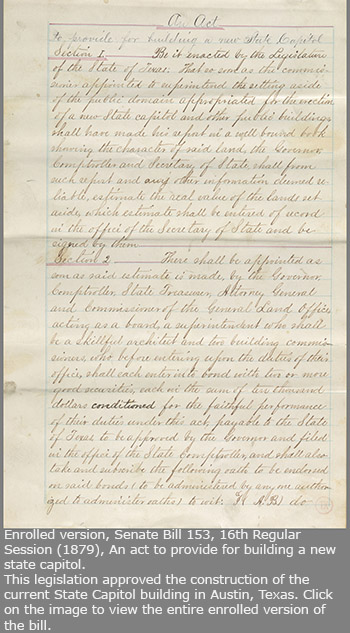 An Act
to provide for building a new State Capitol
Section 1. Be it enacted by the Legislature
of the State of Texas: That so soon as the commis-
sioner appointed to superintend the setting aside
of the public domain appropriated for the erection
of a new State capitol and other public buildings
shall have made his report in a well bound book
showing the character of said land, the Governor,
Comptroller and Secretary of State, shall from
such report and any other information deemed re-
liable, estimate the real value of the lands set
aside, which estimate shall be entered of record
in the office of the Secretary of State and be
signed by them
Section 2 There shall be appointed as
soon as said estimate is made, by the Governor,
Comptroller, State Treasurer, Attorney General
and Commissioner of the General Land Office
acting as a board, a superintendent who shall
be a skillful architect and two building commis-
sioners, who before entering upon the duties of their
office, shall each enter into bond with two or more
good securities, each in the sum of ten thousand
dollars conditioned for the faithful performance
of their duties under this act, payable to the State
of Texas to be approved by the Governor and filed
in the office of the State Comptroller, and shall also
take and subscribe the following oath to be endorsed
on said bonds (to be administered by any one author-
ized to administer oaths) to wit: "I (A.B.) do
Enrolled version, Senate Bill 153, 16th Regular
Session (1879), An act to provide for building a new
state capitol.
This legislation approved the construction of the
current State Capitol building in Austin, Texas. Click
on the image to view the entire enrolled version of
the bill.